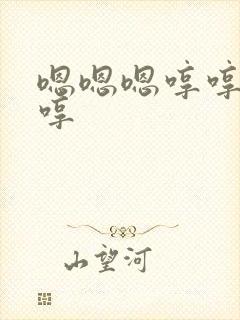 嗯嗯嗯哼哼
哼
山望河